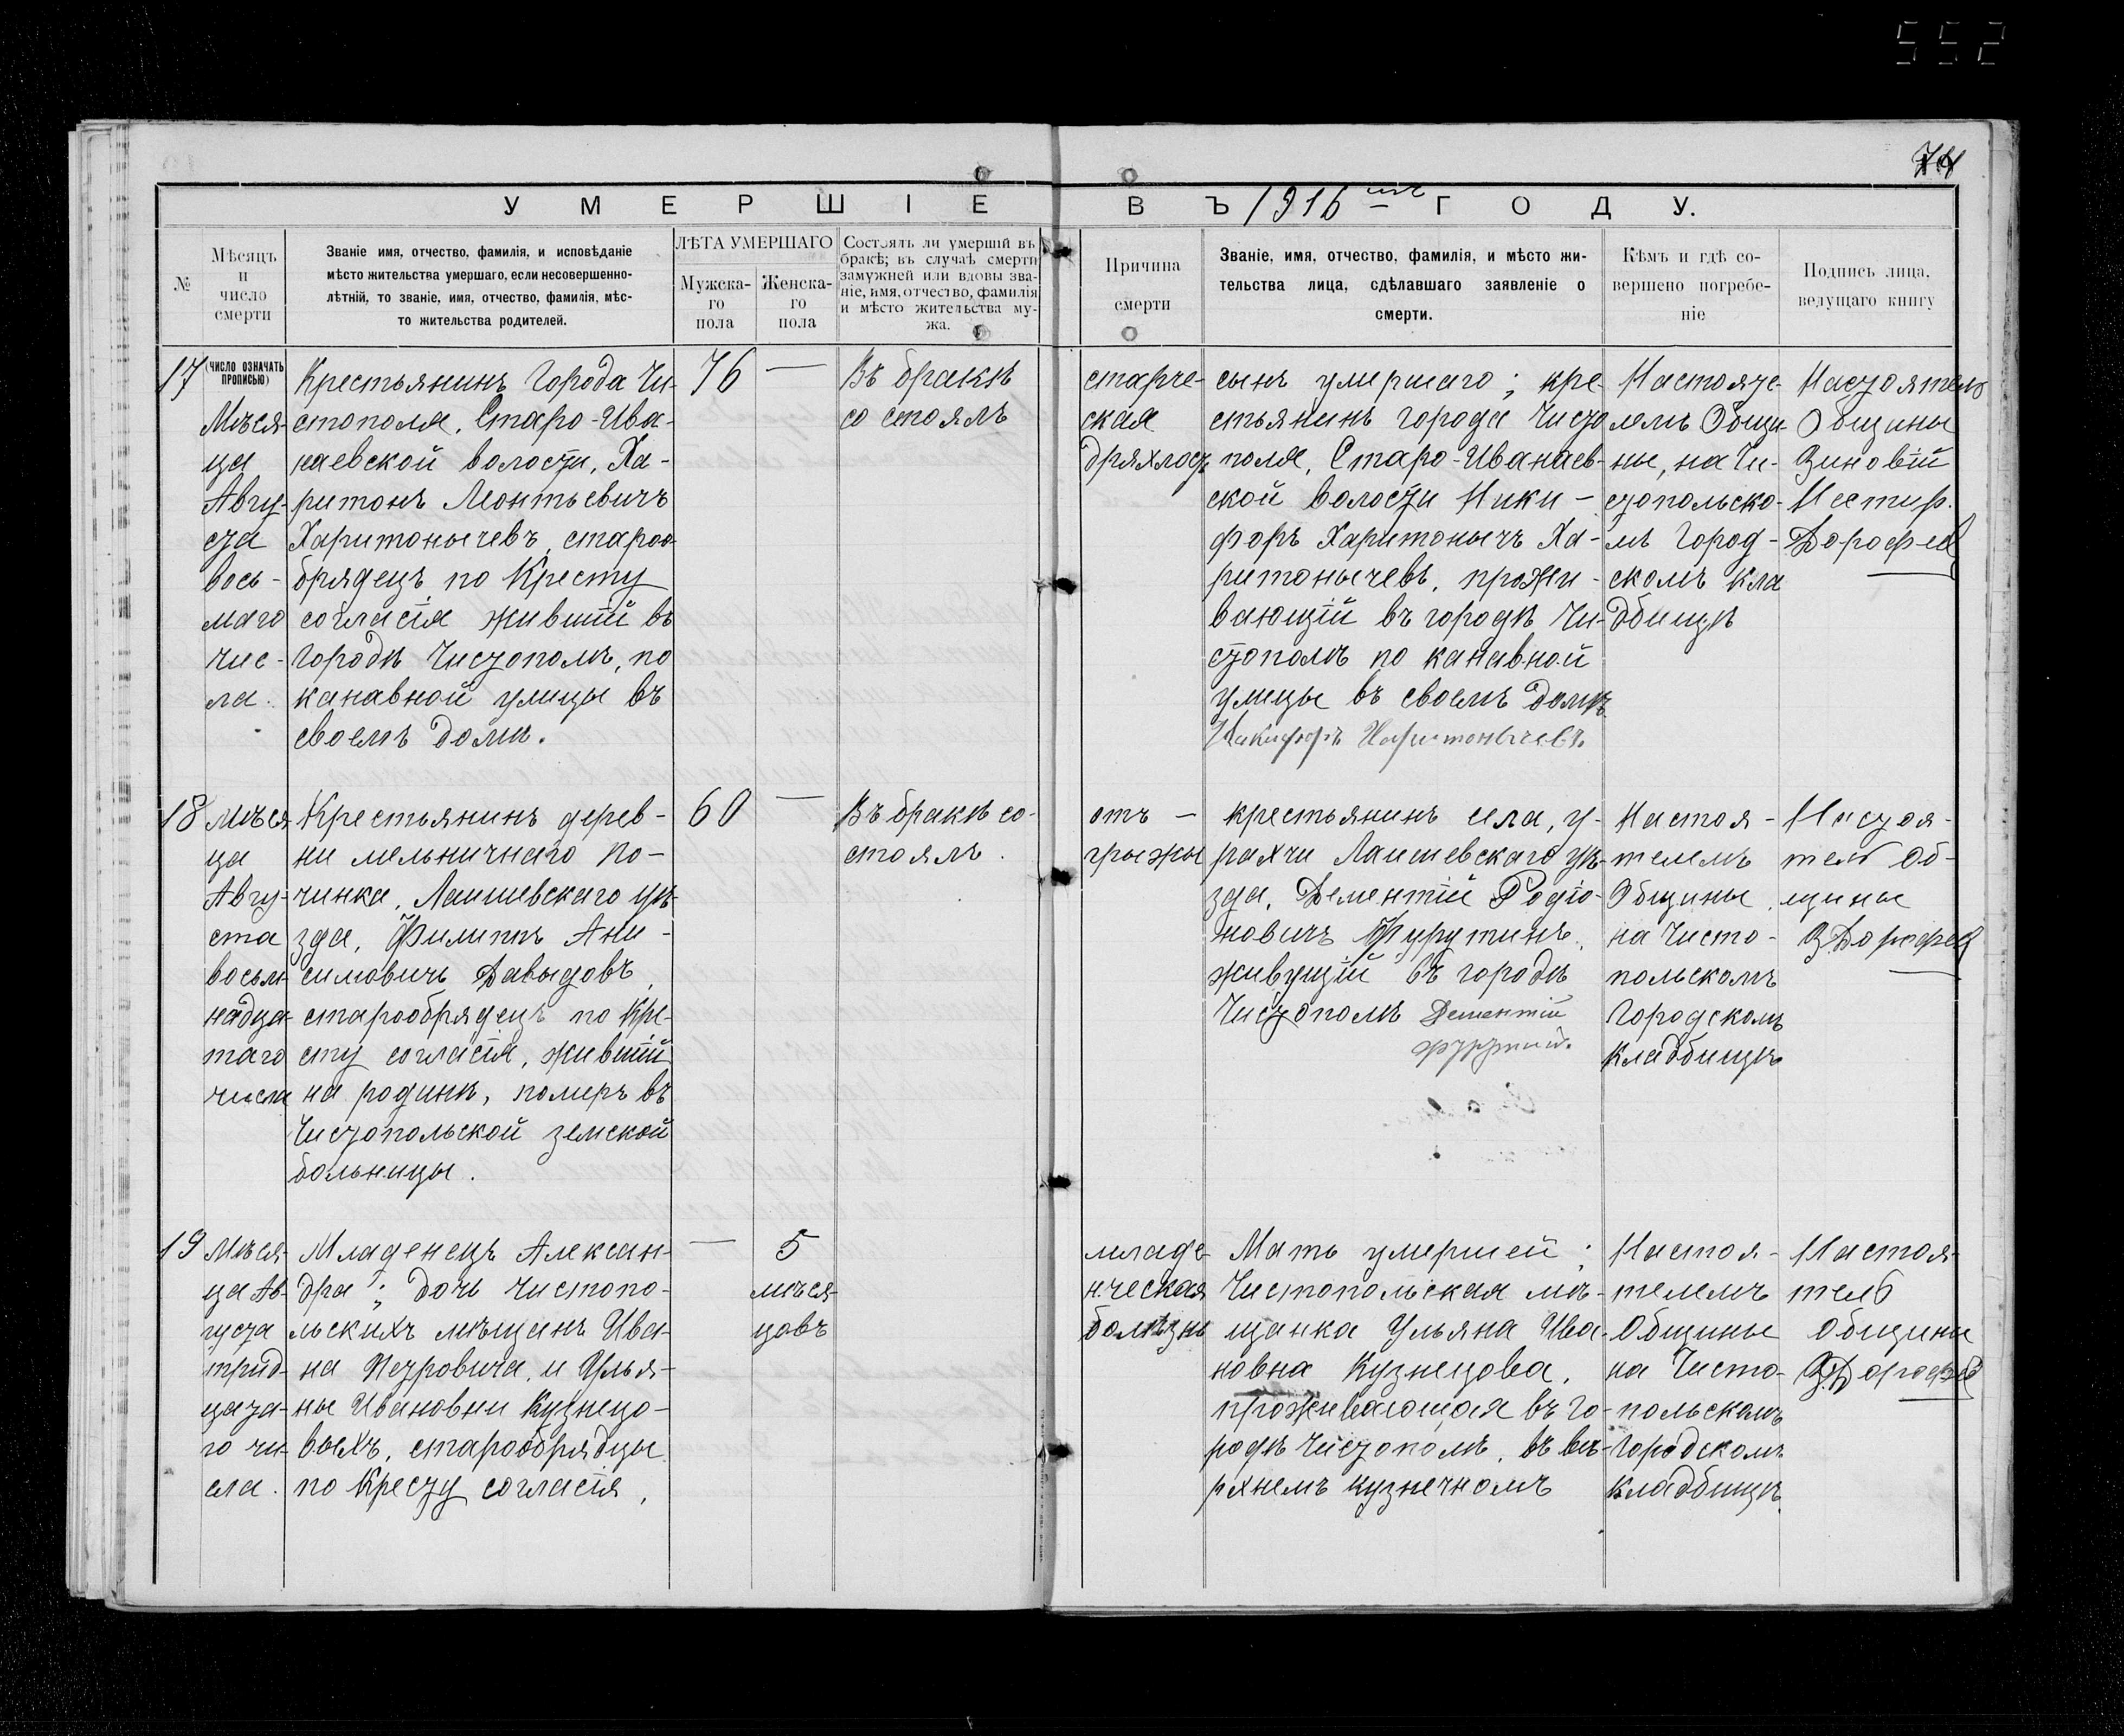 552
74
УМЕРШІЕ
ВЪ 1916 мъ ГОДУ.
№
Мѣсяцъ
и
число
смерти
Званіе имя, отчество, фамилія, и исповѣданіе
мѣсто жительства умершаго, если несовершенно-
лѣтній, то званіе, имя, отчество, фамилія, мѣс-
то жительства родителей.
ЛѢТА УМЕРШАГО
Мужска-
го
пола
Женска-
го
пола
Состоялъ ли умершій въ
бракѣ; въ случаѣ смерти
замужней или вдовы зва-
ніе, имя, отчество, фамилія
и мѣсто жительства му-
жа.
Причина
смерти
Званіе, имя, отчество, фамилія, и мѣсто жи-
тельства лица, сдѣлавшаго заявленіе о
смерти.
Кѣмъ и гдѣ со-
вершено погребе-
ніе
Подпись лица,
ведущаго книгу
17
(ЧИСЛО ОЗНАЧАТЬ
ПРОПИСЬЮ)
Мѣся-
ца
Авгу-
ста
вось-
маго
чис-
ла.
Крестьянинъ Города Чи-
стополя, Старо-Ива-
наевской волости, Ха-
ритонъ Леонтьевичъ
Харитонычевъ, староо-
брядецъ по Кресту
согласія живший въ
Городѣ Чистополѣ, по
канавной улицы въ
своемъ домѣ.
76
—
Въ бракѣ
состоялъ
старче-
ская
дряхлость
сынъ умершаго; кре-
стьянинъ города Чисто
поля, Старо-Иванаев-
ской волости Ники-
форъ Харитонычъ Ха-
ритонычевъ, прожи-
вающій въ городѣ Чи-
стополѣ по канавной
улицы въ своемъ домѣ
Никифоръ Харитонычевъ.
Настояте-
лемъ Общи-
ны, на Чи-
стопольско-
мъ Город-
скомъ кла
дбищѣ
Настоятель
Общины
Зиновій
Нестиф.
Дорофеев
18
мѣся
ца
Авгу-
ста
восьм-
надца-
таго
числа
Крестьянинъ дерев-
ни мельничнаго по-
чинка, Лаишевскаго уѣ-
зда, Филиппъ Ани-
симовичъ Давыдовъ,
старообрядецъ по Кре-
сту согласія, живший
на родинѣ, померъ въ
Чистопольской земской
больницы.
60
—
Въ бракѣ со-
стоялъ.
отъ -
грыжы
крестьянинъ села, у-
рахчи Лаишевскаго уѣ-
зда, Дементій Родіо-
новичъ Фурутинъ,
живущій въ городѣ
Чистополѣ Дементій
Настоя-
телемъ
Общины,
на Чисто-
польскомъ
Городскомъ
Кладбищѣ
Настоя-
тель Об-
щины
З. Дорофеев
19
Мѣся-
ца Ав-
густа
трид-
цата-
го чи-
сла.
Младенецъ Алексан-
дра; дочь чистопо-
льскихъ мѣщанъ Ива-
на Петровича, и Улья-
ны Ивановны Кузнецо-
выхъ, старообрядцы
по Кресту согласія,
—
5
мѣся-
цовъ
младе-
нческая
болѣзнь
Мать умершей;
Чистопольская мѣ-
щанка Ульяна Ива-
новна Кузнецова,
проживающая въ Го-
родѣ Чистополѣ, въ вѣ-
рхнемъ кузнечномъ
Настоя-
телемъ
Общины
на Чисто-
польскомъ
Городскомъ
кладбищѣ.
Настоя-
тель
Общины
З. Дорофеев